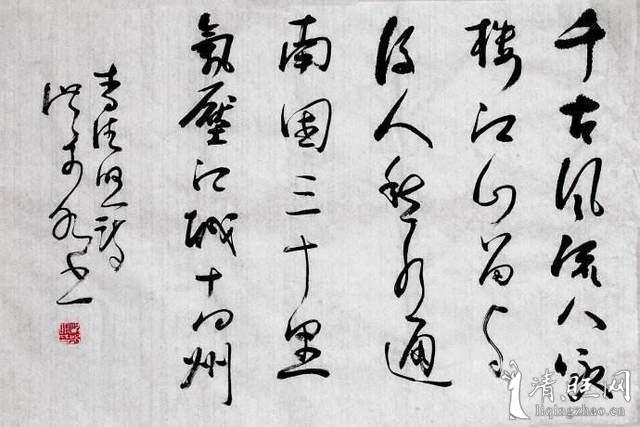 千古风流八詠
楼江山留与
后人愁水通
南国三十里
氣壓江城十四州
李清照詩
清旺网
liqingzhao.com